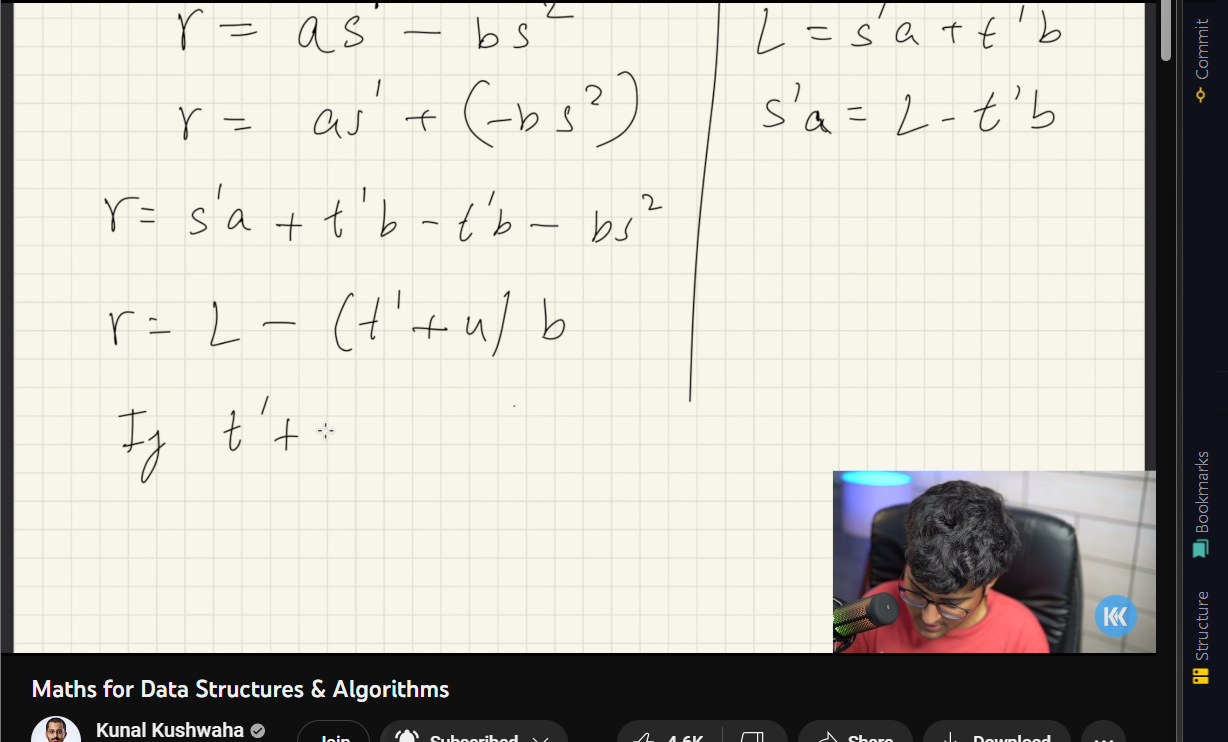 r = as' - bs²
r = as' + (-bs²)
r = s'a + t'b - t'b - bs²
r = L - (t' + u) b
If t' +
L = s'a + t'b
s'a = L - t'b
KK
Maths for Data Structures & Algorithms
Kunal Kushwaha
Join
Subscribed
4.6K
Share
Download
Commit
Bookmarks
Structure